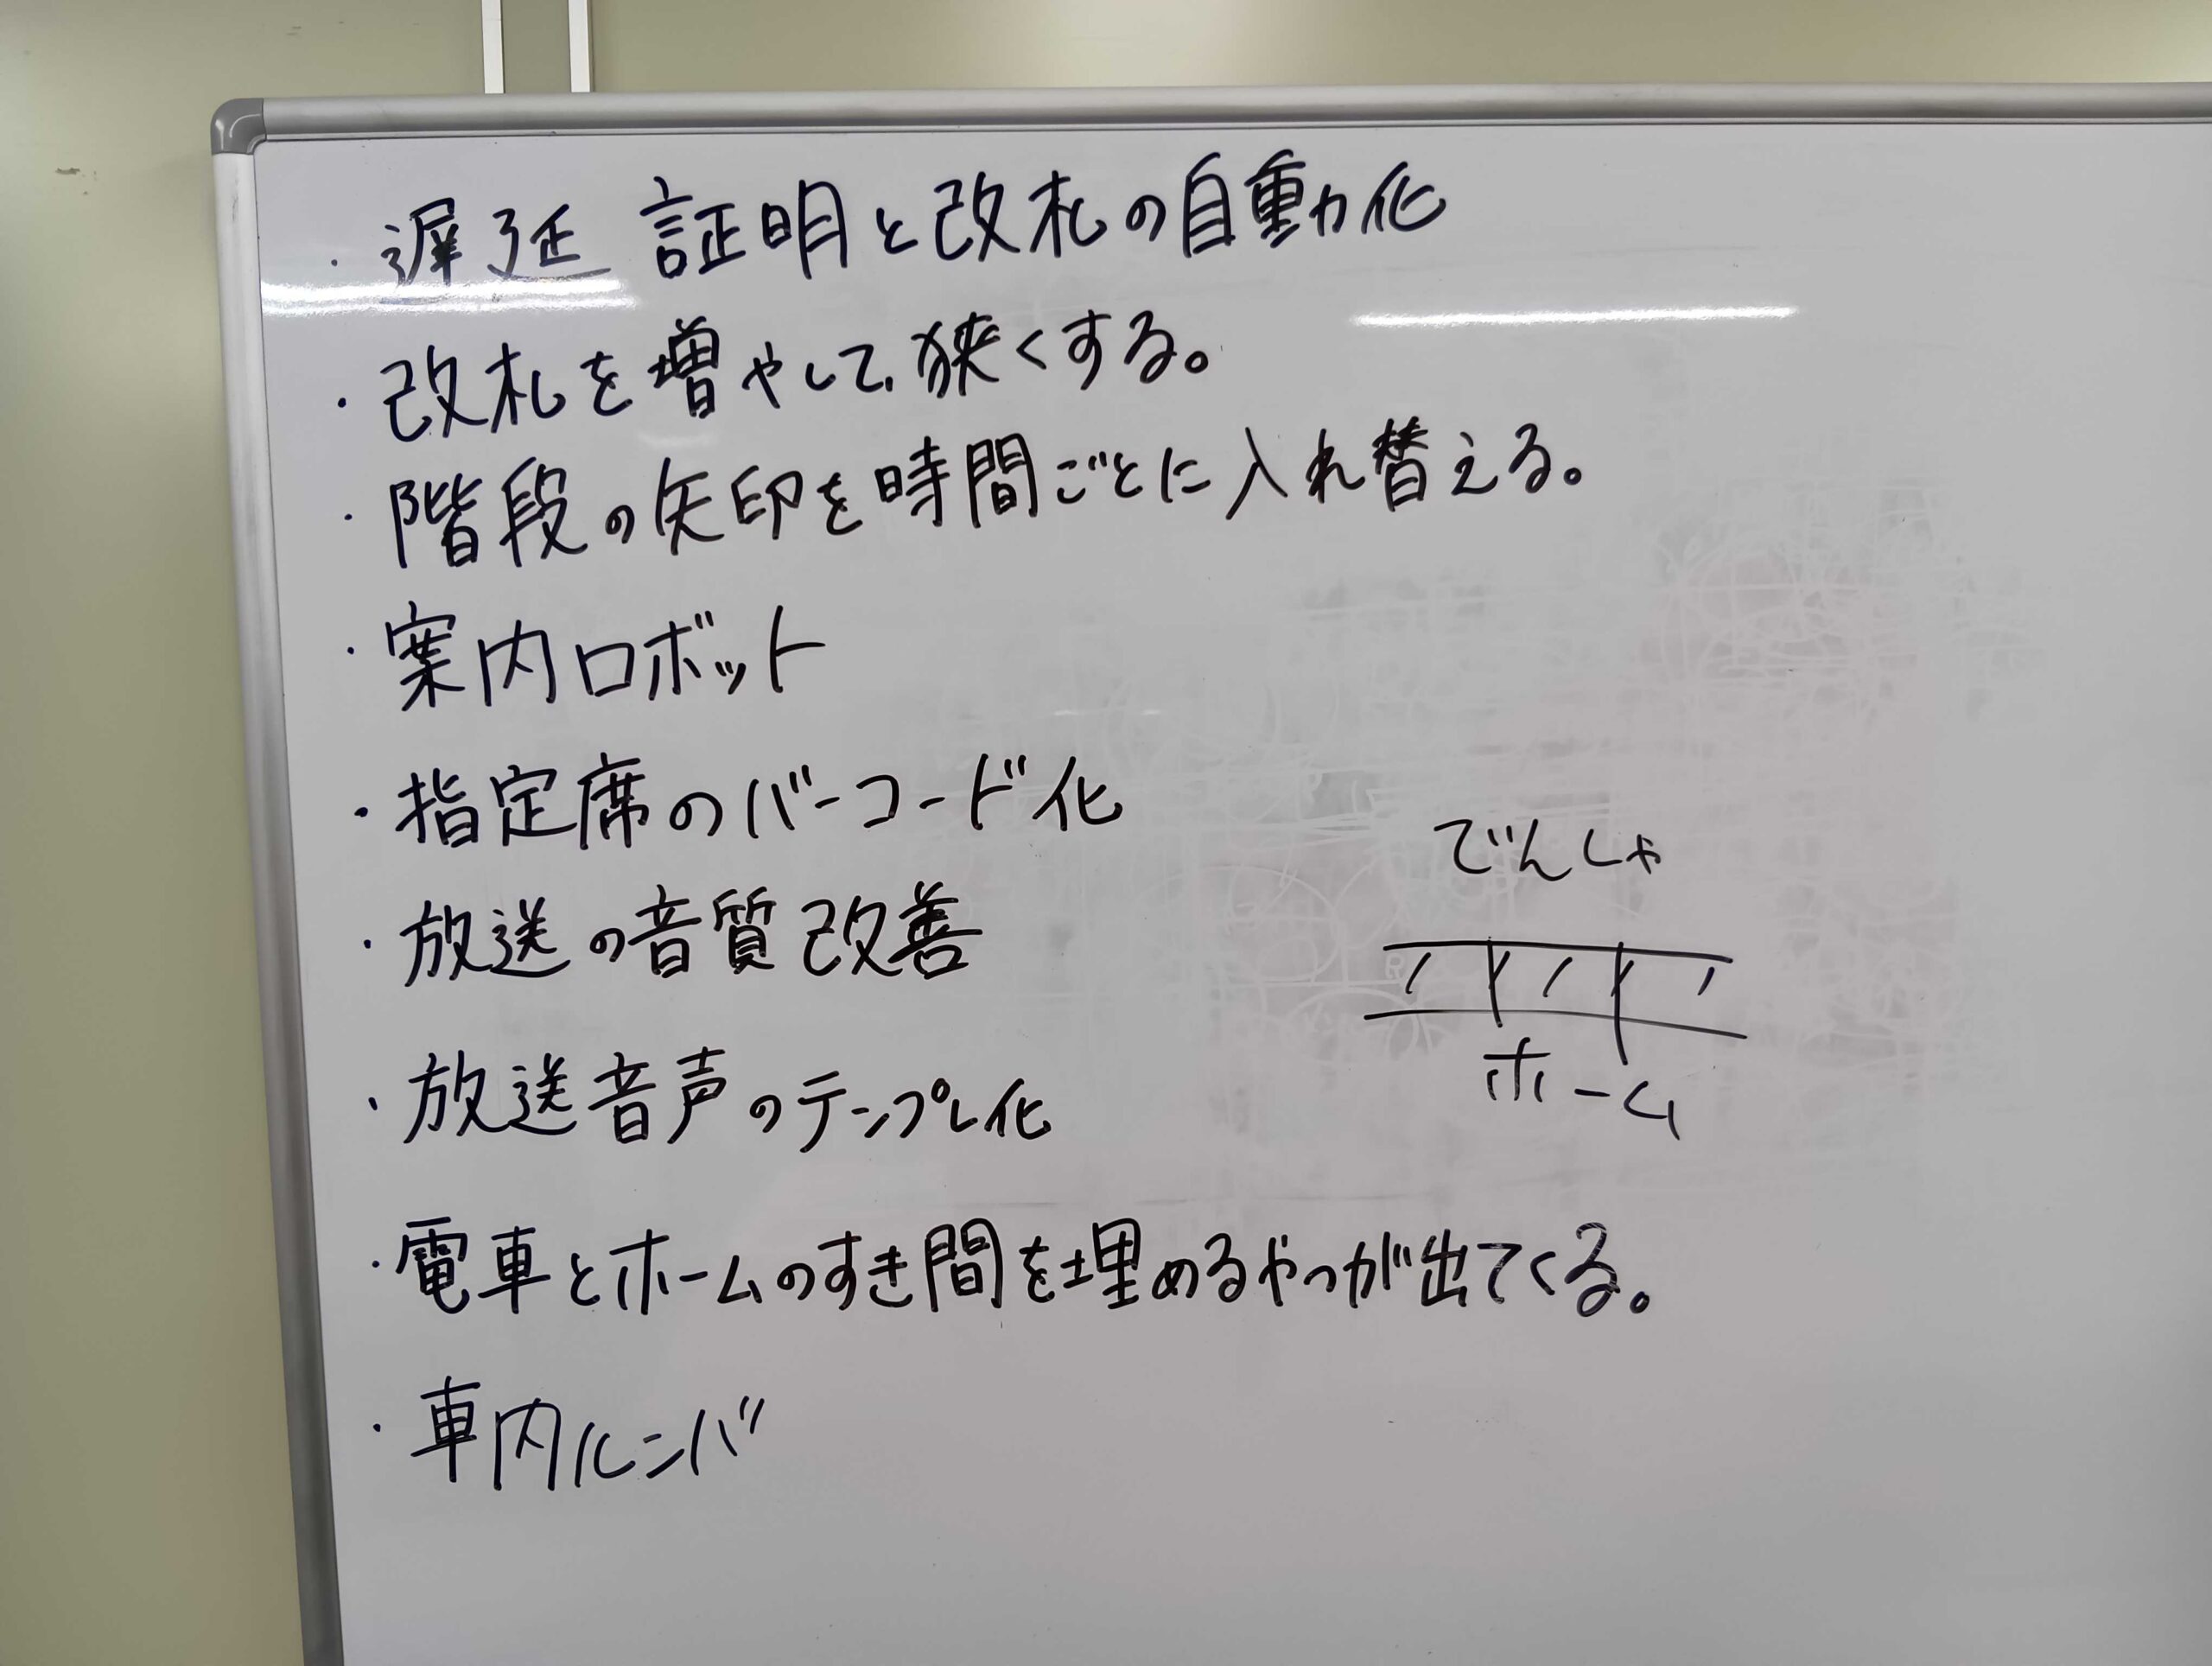 ・遅延 証明と改札の自動化
・改札を増やして、狭くする。
・階段の矢印を時間ごとに入れ替える。
・案内ロボット
・指定席のバーコード化
・放送の音質改善
・放送音声のテンプレ化
・電車とホームのすき間を埋めるやつが出てくる。
・車内ルンバ
でんしゃ
ホーム